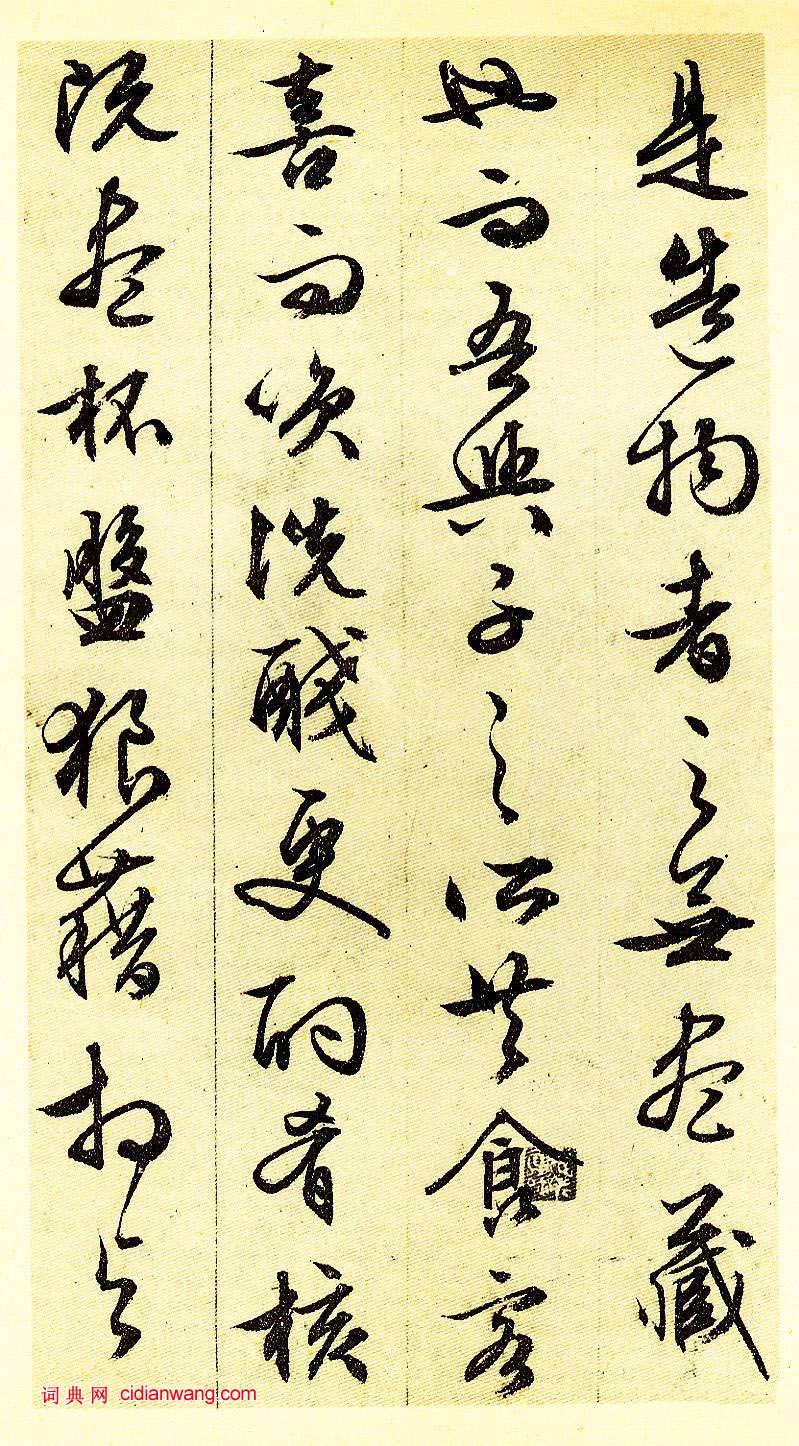 是造物者之無盡藏
也而吾與子之所共食客
喜而咲洗醆更酌肴核
既盡杯盤狼藉相与
词典网 cidianwang.com